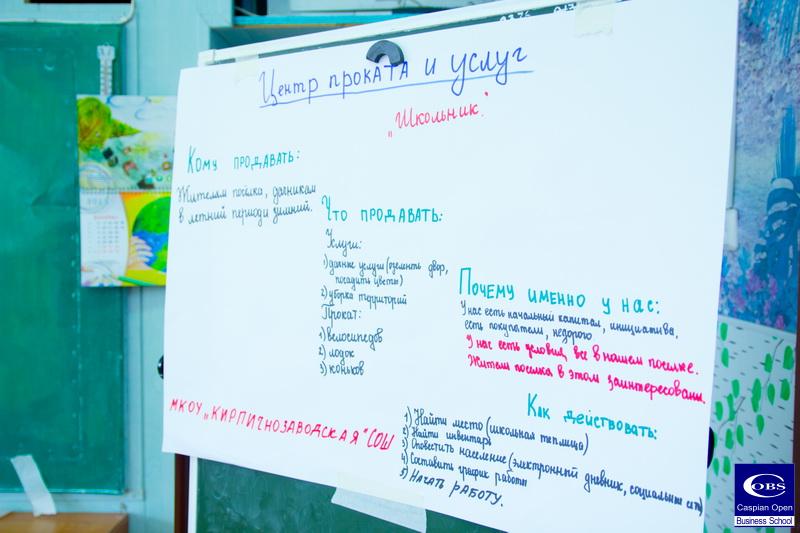 Центр проката и услуг
„Школьник."
Кому продавать:
Жителям посёлка, дачникам
в летний период и зимний.
Что продавать:
Услуги:
1) дачные услуги (озеленить двор,
посадить цветы)
2) уборка территорий
Прокат:
1) велосипедов
2) лодок
3) коньков
Почему именно у нас:
У нас есть начальный капитал, инициатива,
есть покупатели, недорого
У нас есть условия, все в нашем поселке.
Жители поселка в этом заинтересованы.
Как действовать:
1) Найти место (школьная теплица)
2) Найти инвентарь
3) Оповестить население (электронный дневник, социальные сети)
4) Составить график работы
5) Начать работу.
МКОУ „КИРПИЧНОЗАВОДСКАЯ" СОШ
COBS
Caspian Open
Business School